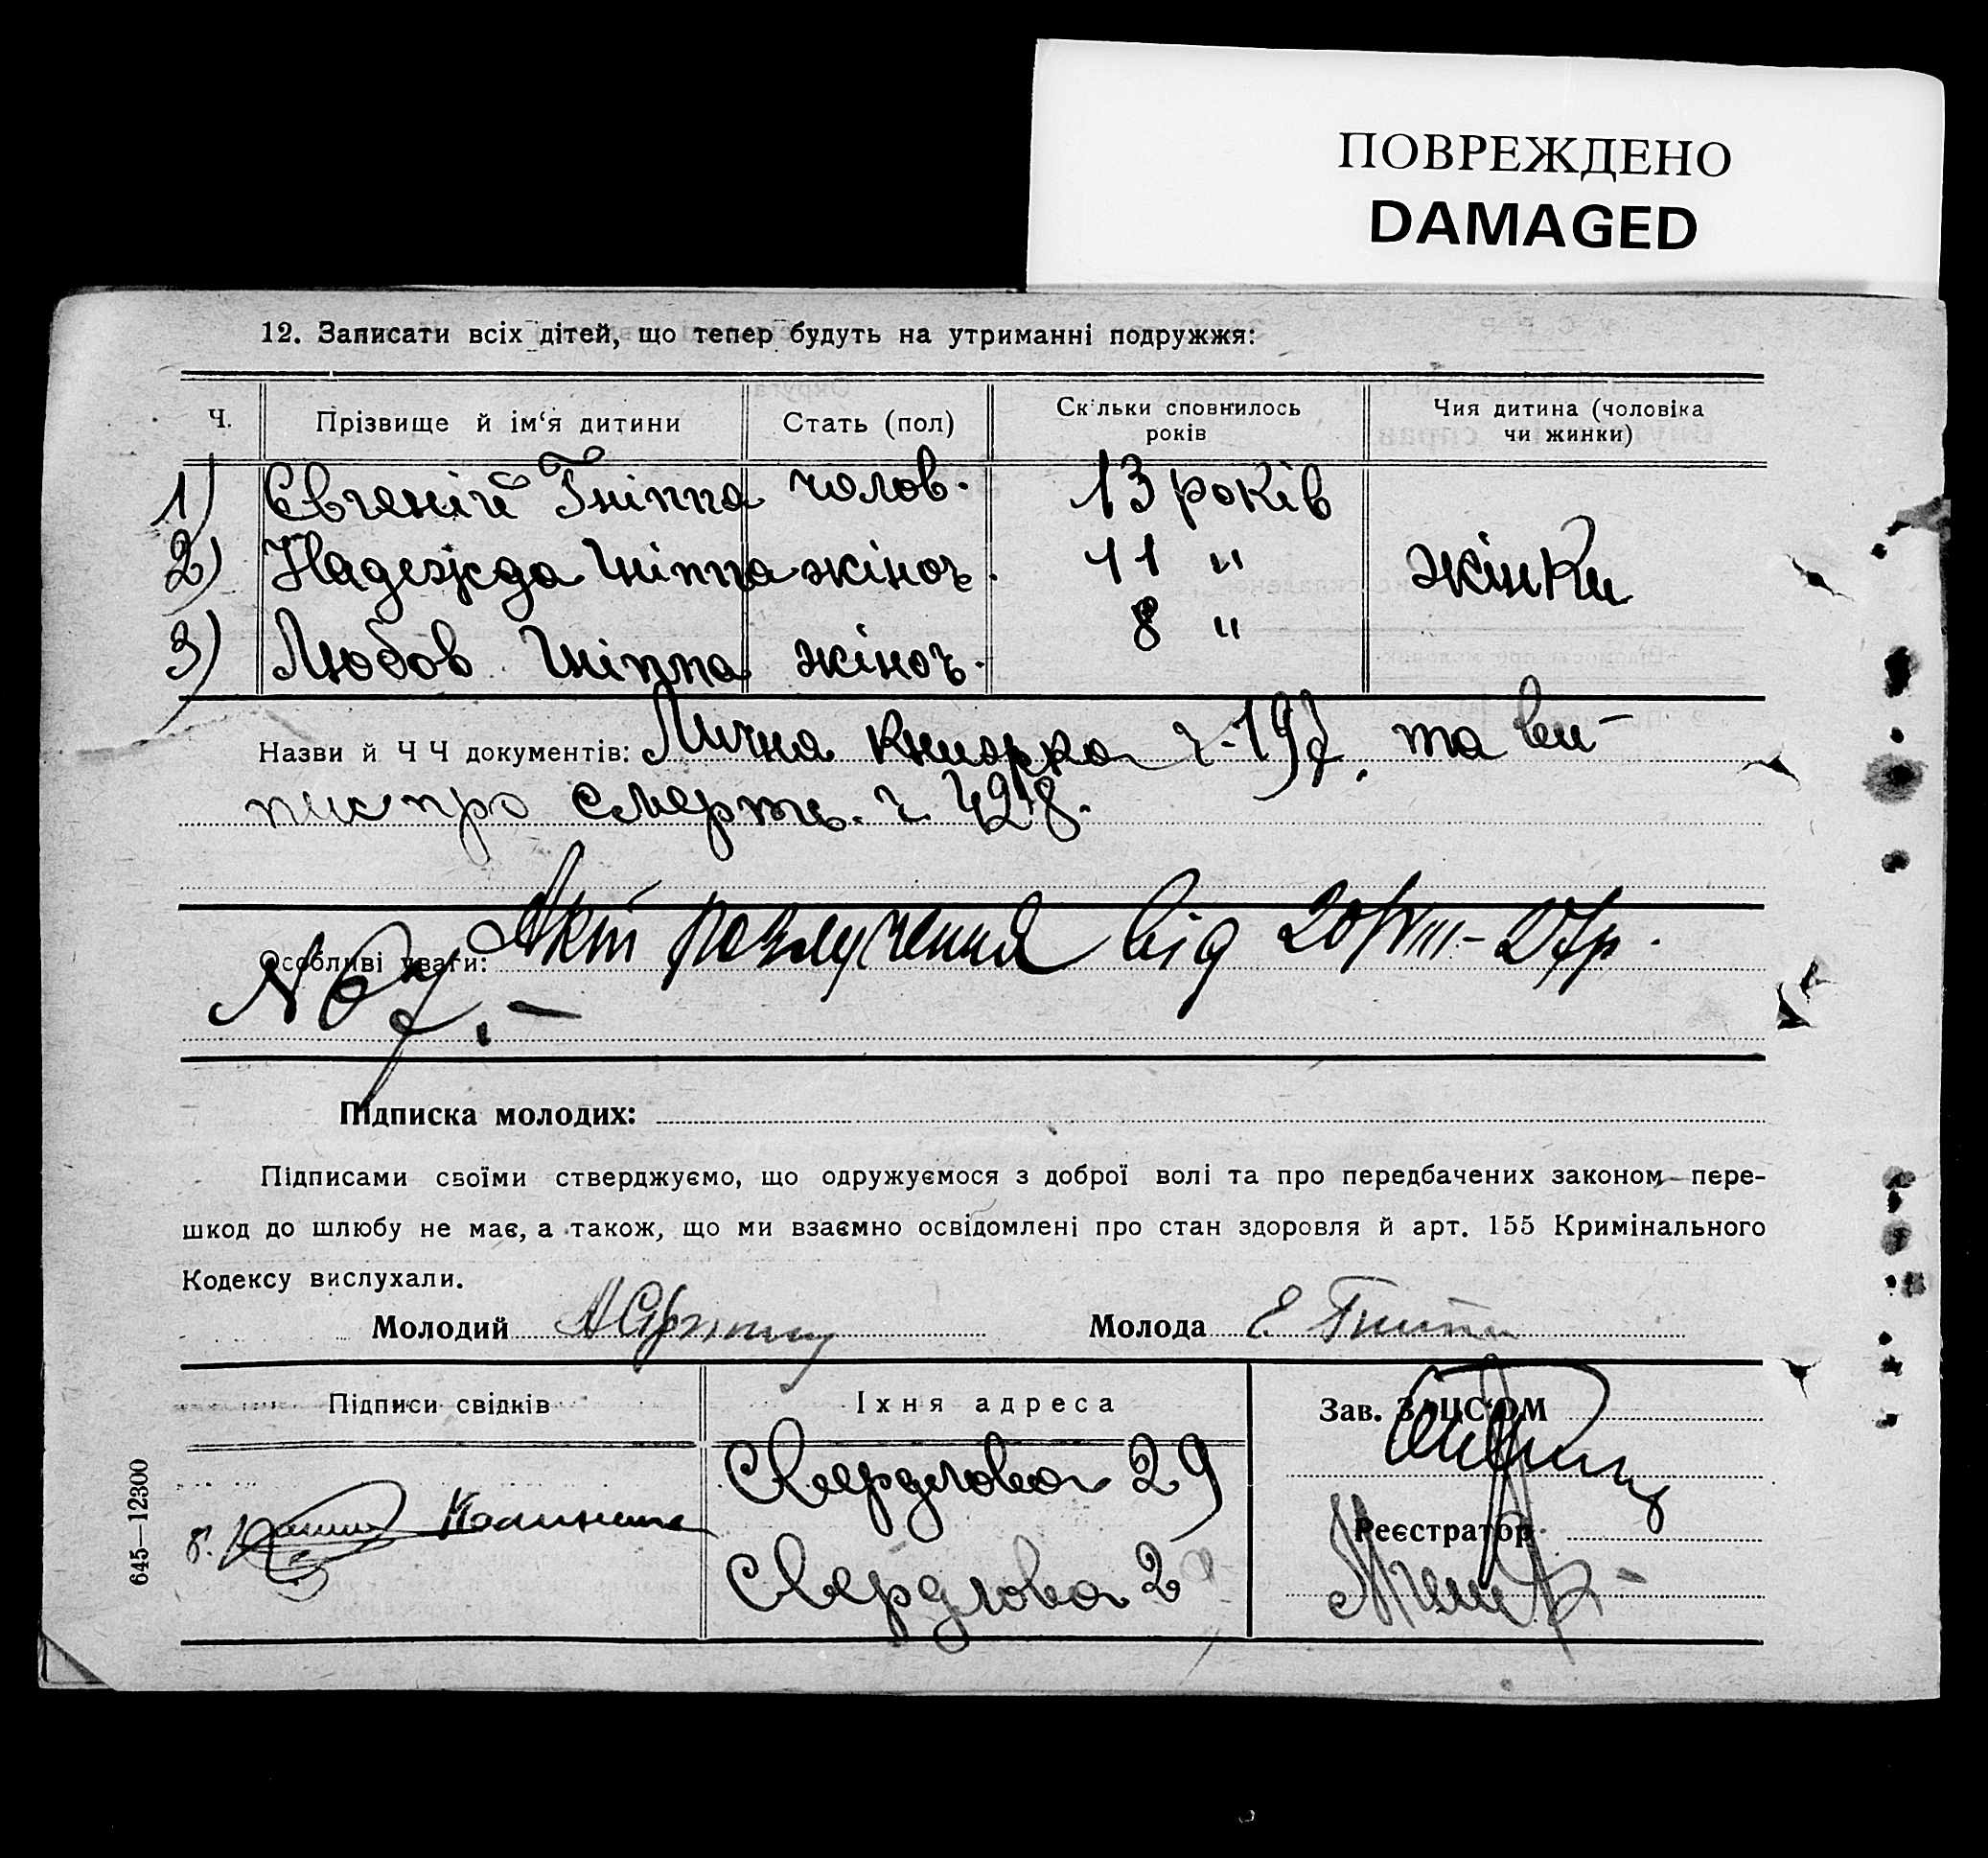 ПОВРЕЖДЕНО
DAMAGED
12. Записати всіх дітей, що тепер будуть на утриманні подружжя:
Ч. Прізвище й ім'я дитини Стать (пол) Скільки сповнилось років Чия дитина (чоловіка чи жинки)
1) Євгеній Гніппа чолов. 13 років
2) Надежда Гніппа жіноч. 11 " жінки
3) Любов Гніппа жіноч. 8 "
Назви й Ч Ч документів: Лична книжка ч. 197. та ви-
пис про смерть. ч. 428.
Особливі уваги: Акт розлучення від 20/VIII-27р.
N 67.-
Підписка молодих:
Підписами своїми стверджуємо, що одружуємося з доброї волі та про передбачених законом пере-
шкод до шлюбу не має, а також, що ми взаємно освідомлені про стан здоровля й арт. 155 Кримінального
Кодексу вислухали.
Молодий Молода Е Гниппа
Підписи свідків Іхня адреса Зав. ЗАЦС'ОМ
Свердлова 29
Реєстратор
Свердлова 2
645—12300